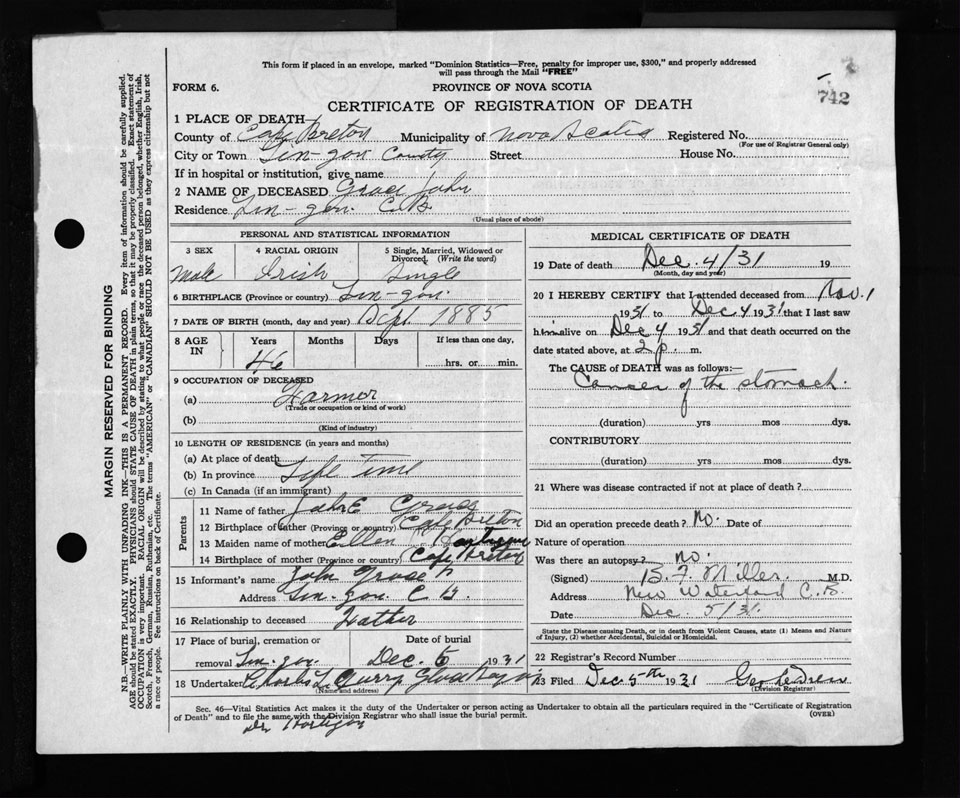 This form if placed in an envelope, marked "Dominion Statistics—Free, penalty for improper use, $300," and properly addressed
will pass through the Mail "FREE"
742
FORM 6.
PROVINCE OF NOVA SCOTIA
CERTIFICATE OF REGISTRATION OF DEATH
1 PLACE OF DEATH
County of Cape Breton Municipality of Nova Scotia Registered No.
(For use of Registrar General only)
City or Town Lin-gon County Street House No.
If in hospital or institution, give name
2 NAME OF DECEASED Grace John
Residence Lin-gon C B.
(Usual place of abode)
PERSONAL AND STATISTICAL INFORMATION
3 SEX 4 RACIAL ORIGIN 5 Single, Married, Widowed or Divorced, (Write the word)
Male Irish Single
6 BIRTHPLACE (Province or country) Lin-gon.
7 DATE OF BIRTH (month, day and year) Sept. 1885
8 AGE IN Years Months Days If less than one day,
46 hrs. or min.
9 OCCUPATION OF DECEASED
(a) Farmer
(Trade or occupation or kind of work)
(b)
(Kind of industry)
10 LENGTH OF RESIDENCE (in years and months)
(a) At place of death
(b) In province Life Time
(c) In Canada (if an immigrant)
Parents
11 Name of father John Grace
12 Birthplace of father (Province or country) Cape Breton
13 Maiden name of mother Ellen
14 Birthplace of mother (Province or country) Cape Breton
15 Informant's name John Grace
Address Lin-gon. C B.
16 Relationship to deceased Father
17 Place of burial, cremation or Date of burial
removal Lin-gon Dec. 6 1931
18 Undertaker Charles L. Curry Glace Bay
(Name and address)
MEDICAL CERTIFICATE OF DEATH
19 Date of death Dec. 4/31 19
(Month, day and year)
20 I HEREBY CERTIFY that I attended deceased from Nov. 1
1931 to Dec 4 1931 that I last saw
him alive on Dec 4 1931 and that death occurred on
date stated above, at 2 p. m.
The CAUSE of DEATH was as follows:—
Cancer of the stomach.
(duration) yrs mos dys.
CONTRIBUTORY
(duration) yrs. mos. dys.
21 Where was disease contracted if not at place of death?
Did an operation precede death? No. Date of
Nature of operation
Was there an autopsy? no.
(Signed) B. F. Miller. M.D.
Address New Waterford C.B.
Date Dec. 5/31.
State the Disease causing Death, or in death from Violent Causes, state (1) Means and Nature
of Injury, (2) whether Accidental, Suicidal or Homicidal.
22 Registrar's Record Number
23 Filed Dec 5th 1931
(Division Registrar)
Sec. 46—Vital Statistics Act makes it the duty of the Undertaker or person acting as Undertaker to obtain all the particulars required in the "Certificate of Registration
of Death" and to file the same with the Division Registrar who shall issue the burial permit.
(OVER)
MARGIN RESERVED FOR BINDING
N.B.—WRITE PLAINLY WITH UNFADING INK—THIS IS A PERMANENT RECORD. Every item of information should be carefully supplied.
AGE should be stated EXACTLY. PHYSICIANS should STATE CAUSE OF DEATH in plain terms, so that it may be properly classified. Exact statement of
OCCUPATION is very important. RACIAL ORIGIN will be described by stating to what people or race the deceased person belonged, whether English, Irish,
Scotch, French, German, Russian, Ruthenian, etc. The terms "AMERICAN" or "CANADIAN" SHOULD NOT BE USED as they express citizenship but not
a race or people. See instructions on back of Certificate.